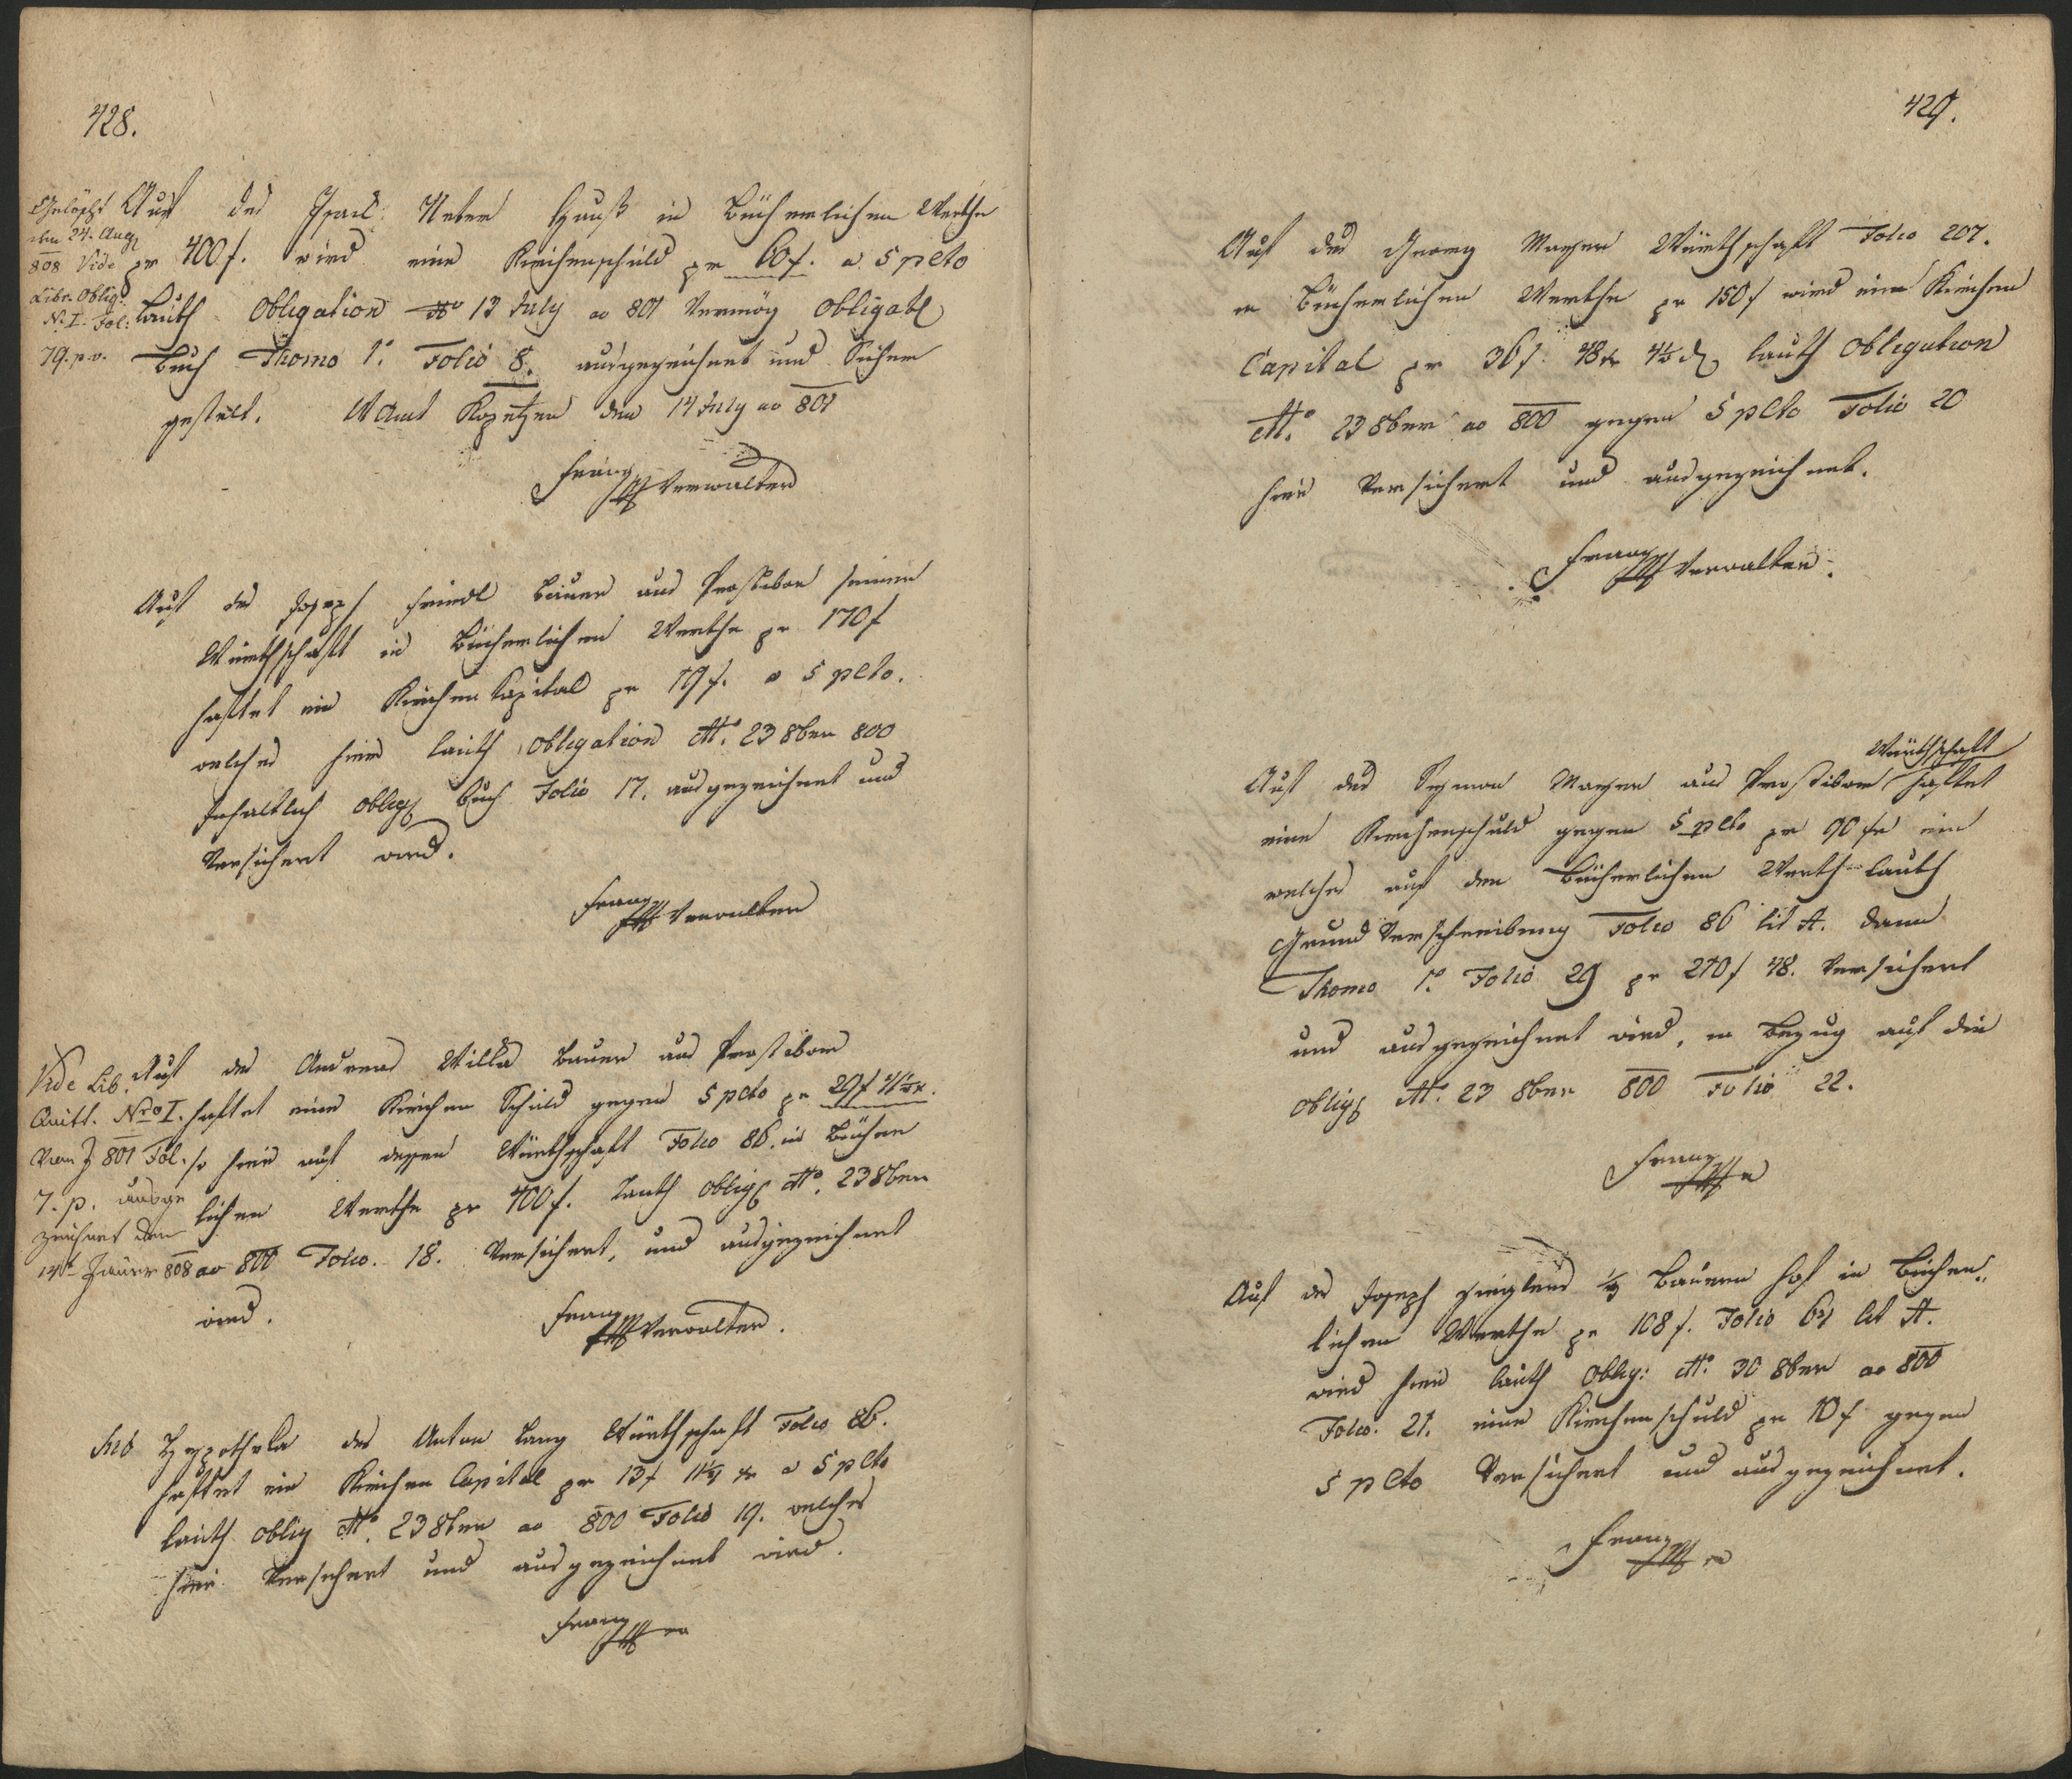 428.
Gelöscht
den 24. Aug
808 Vide
Libr. Oblig:
N. I. Fol:
79. p. v.
Auf des Israel Neter Hauß in Bücherlichen Werthe
pr 400 f. wird eine Kirchenschuld pr 60 f. a 5 pCto
Lauth Obligation dto 13 July ao 801 Vermög Obligat
Buch Thomo 1o. Folio 8. ausgezeichnet und Sicher
gestelt. WAmt Kopetzen den 14 July ao 801
Franz
Verwalter
Auf des Joseph Bauer aus Prostibor seiner
Würthschaft in Bücherlichen Werthe pr 170 f
haftet ein Kirchen Kapital pr 19 f. a 5 pCto.
welches hier lauth Obligation dto. 23 8ber 800
Inhaltlich Oblig Buch Folio 17. ausgezeichnet und
Versichert wird.
Franz
Verwalter
Vide Lib.
Quitt. Nro I.
Vom J 801 Fol.
7. p. ausge
zeichnet den
14t Jäner 808
Auf des Andreas Willa Bauer aus Prostibor
haftet eine Kirchen Schuld gegen 5 pCto pr 29 f
so hier auf dessen Würthschaft Folio 86. in Bücher
lichen Werthe pr 400 f. Lauth Oblig dto. 23 8ber
ao 800 Folio. 18. Versichert, und ausgezeichnet
wird.
Franz
Verwalter.
Hypotheka des Anton Lang Würthschaft Folio 86.
haftet ein Kirchen Capital pr 13 f 11 xr a 5 pCto
lauth Oblig dto. 23 8ber ao 800 Folio 19. welches
hier Versichert und ausgezeichnet wird.
Franz
429.
Auf des Georg Mayer Würthschaft Folio 207.
in Bücherlichen Werthe pr 150 f wird ein Kirchen
Capital pr 36 f. 48 xr lauth Obligation
dto. 23 8ber ao 800 gegen 5 pCto Folio 20
hier Versichert und ausgezeichnet.
Franz
Verwalter.
Würthschaft
Auf des Symon Mayer aus Prostibor haftet
eine Kirchenschuld gegen 5 pCto pr 90 fr
welches auf den Bücherlichen Werth lauth
Grund Verschreibung Folio 86 lit A. dann
Thomo 1o. Folio 29 pr 270 f 48. Versichert
und ausgezeichnet wird, in Bezug auf die
Oblig dto. 23 8ber 800 Folio 22.
Franz
Auf des Joseph Bauern Hof in Bücher„
lichen Werthe pr 108 f. Folio 61 lit A.
wird hier lauth Oblig: dto. 30 8ber ao 800
Folio. 21. eine Kirchenschuld pr 10 f gegen
5 pCto Versichert und ausgezeichnet.
Franz